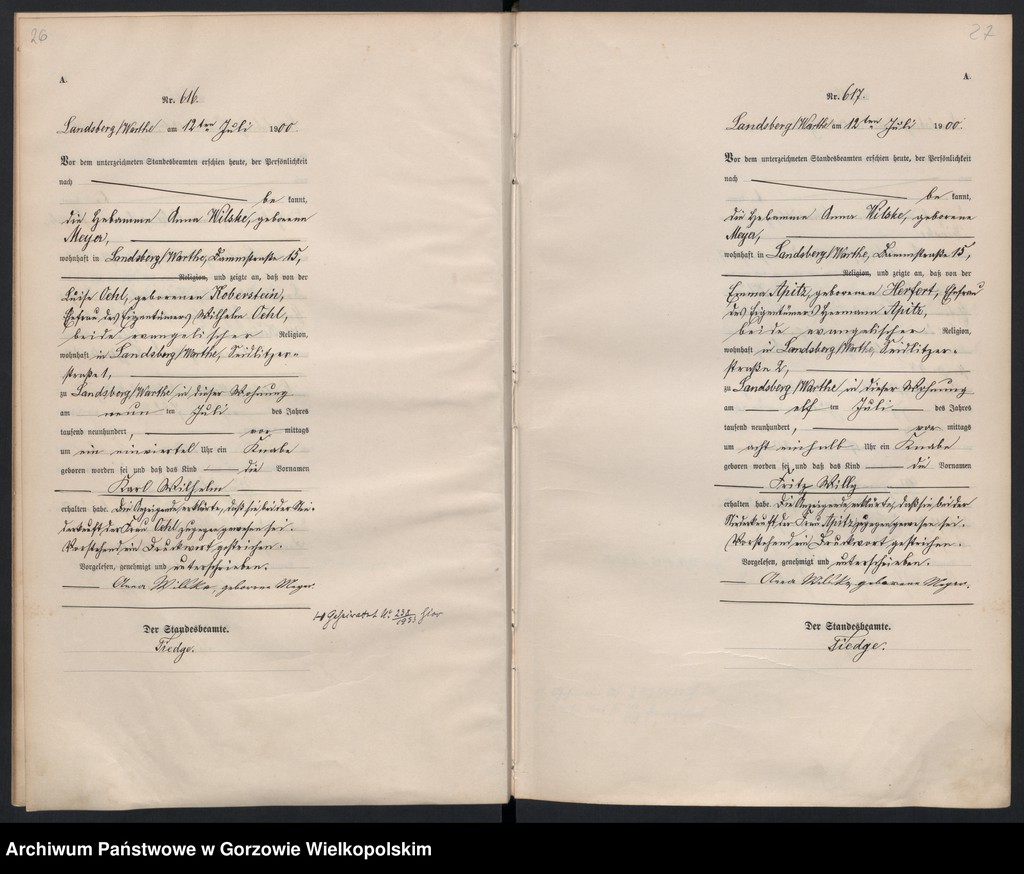 26
A.
Nr. 616.
Landsberg/Warthe am 12ten Juli 1900.
Vor dem unterzeichneten Standesbeamten erschien heute, der Persönlichkeit
nach
be kannt,
die Hebamme Anna Wilske, geborene
Meyer,
wohnhaft in Landsberg/Warthe, Dammstraße 15,
Religion, und zeigte an, daß von der
Luise Oehl, geborenen Koberstein,
Ehefrau des Eigentümers Wilhelm Oehl,
beide evangelischer Religion,
wohnhaft in Landsberg/Warthe, Seidlitzer-
straße 1,
zu Landsberg/Warthe in dieser Wohnung
am neun ten Juli des Jahres
tausend neunhundert, vor mittags
um ein einviertel Uhr ein Knabe
geboren worden sei und daß das Kind die Vornamen
Karl Wilhelm
erhalten habe. Die Anzeigende erklärte, daß sie bei der Nie-
derkunft der Frau Oehl zugegen gewesen sei.
Vorstehend ein Druckwort gestrichen.
Vorgelesen, genehmigt und unterschrieben.
Anna Wilske, geborene Meyer.
Geheiratet No 232/1933 hier
Der Standesbeamte.
Tiedge.
27
A.
Nr. 617.
Landsberg/Warthe am 12ten Juli 1900.
Vor dem unterzeichneten Standesbeamten erschien heute, der Persönlichkeit
nach
be kannt,
die Hebamme Anna Wilske, geborene
Meyer,
wohnhaft in Landsberg/Warthe, Dammstraße 15,
Religion, und zeigte an, daß von der
Emma Apitz, geborenen Herfort, Ehefrau
des Eigentümers Hermann Apitz,
beide evangelischer Religion,
wohnhaft in Landsberg/Warthe, Seidlitzer-
straße 2,
zu Landsberg/Warthe in dieser Wohnung
am elf ten Juli des Jahres
tausend neunhundert, vor mittags
um acht einhalb Uhr ein Knabe
geboren worden sei und daß das Kind die Vornamen
Fritz Willy
erhalten habe. Die Anzeigende erklärte, daß sie bei der
Niederkunft der Frau Apitz zugegen gewesen sei.
Vorstehend ein Druckwort gestrichen.
Vorgelesen, genehmigt und unterschrieben.
Anna Wilske, geborene Meyer.
Der Standesbeamte.
Tiedge.
Archiwum Państwowe w Gorzowie Wielkopolskim